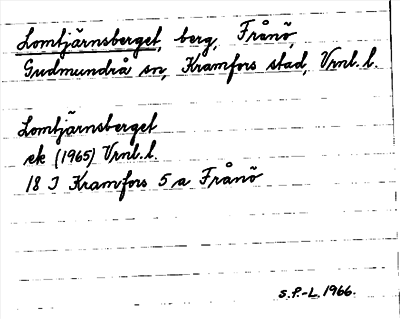 Lomtjärnsberget, berg, Frånö,
Gudmundrå sn, Kramfors stad, Vrnl. l.
Lomtjärnsberget
ek (1965) Vrnl. l.
18 J Kramfors 5 a Frånö
S.P.-L. 1966.